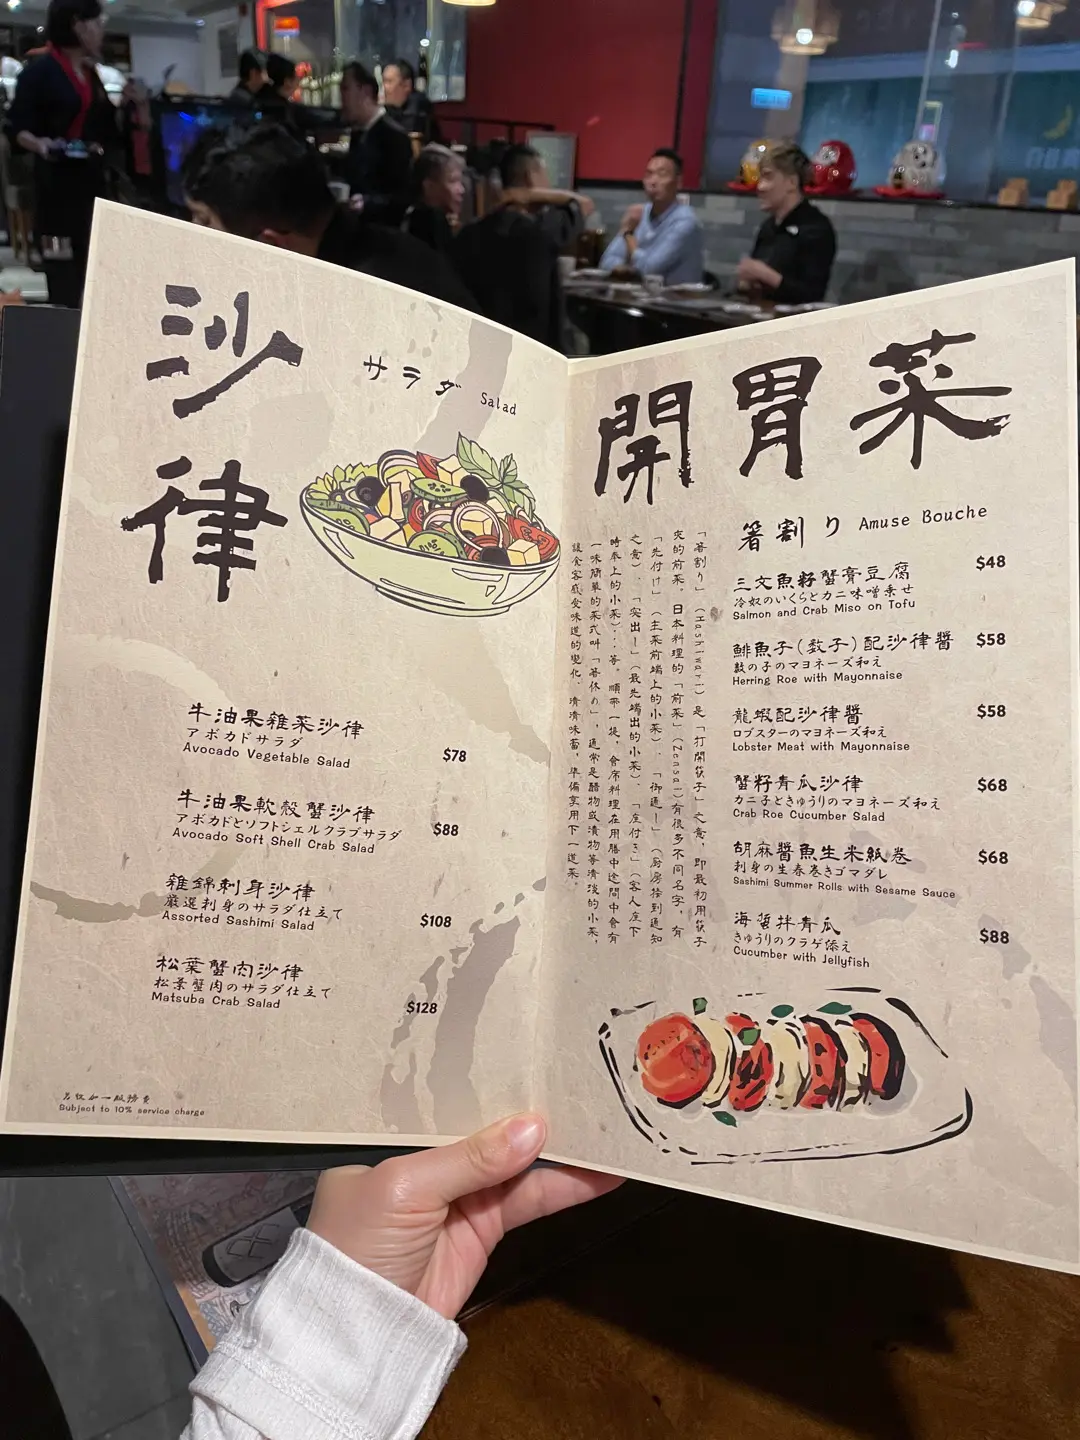 沙律
サラダ Salad
牛油果雜菜沙律
アボカドサラダ
Avocado Vegetable Salad
$78
牛油果軟殼蟹沙律
アボカドとソフトシェルクラブサラダ
Avocado Soft Shell Crab Salad
$88
雜錦刺身沙律
厳選刺身のサラダ仕立て
Assorted Sashimi Salad
$108
松葉蟹肉沙律
松葉蟹肉のサラダ仕立て
Matsuba Crab Salad
$128
另設加一服務費
Subject to 10% service charge
開胃菜
箸割り Amuse Bouche
「箸割り」(Hashiwari)是「打開筷子」之意，即最初用筷子
夾的前菜。日本料理的「前菜」(Zensai)有很多不同名字，有
「先付け」(主菜前端上的小菜)、「御通し」(廚房接到通知
之意)、「突出し」(最先端出的小菜)、「座付き」(客人座下
時奉上的小菜)…等。順帶一提，會席料理在用膳中途間中會有
一味簡單的菜式叫「箸休め」，通常是醋物或漬物等清淡的小菜，
讓食客感受味道的變化，清清味蕾，準備享用下一道菜。
三文魚籽蟹膏豆腐
冷奴のいくらとカニ味噌乗せ
Salmon and Crab Miso on Tofu
$48
鯡魚子(数子)配沙律醬
数の子のマヨネーズ和え
Herring Roe with Mayonnaise
$58
龍蝦配沙律醬
ロブスターのマヨネーズ和え
Lobster Meat with Mayonnaise
$58
蟹籽青瓜沙律
カニ子ときゅうりのマヨネーズ和え
Crab Roe Cucumber Salad
$68
胡麻醬魚生米紙卷
刺身の生春巻きゴマダレ
Sashimi Summer Rolls with Sesame Sauce
$68
海蜇拌青瓜
きゅうりのクラゲ添え
Cucumber with Jellyfish
$88